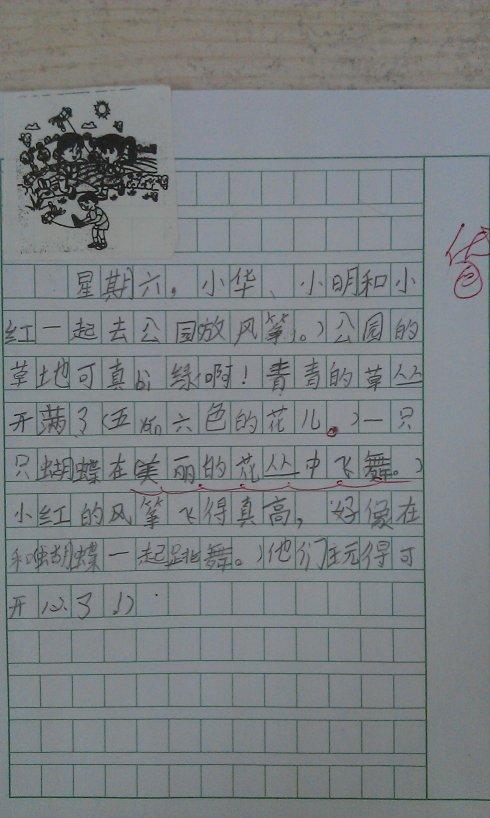 星期六，小华、小明和小
红一起去公园放风筝。公园的
草地可真的绿啊！青青的草丛
开满了五颜六色的花儿。一只
只蝴蝶在美丽的花丛中飞舞。
小红的风筝飞得真高，好像在
和蝴蝶一起跳舞。他们玩得可
开心了！